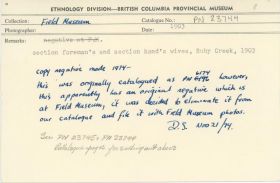 ETHNOLOGY DIVISION—BRITISH COLUMBIA PROVINCIAL MUSEUM
Collection: Field Museum Catalogue No.: PN 23744
Photographer: Date: 1903
Remarks: negative at F.M.
section foreman's and section hand's wives, Ruby Creek, 1903
copy negative made 1974-
this was originally catalogued as PN 6196 however,
6174
this apparently has an original negative which is
at Field Museum, it was decided to eliminate it from
our catalogue and file it with Field Museum photos.
D.S. Nov 21/74.
See PN 23745, PN 23744
Catalogue pages for writing out above